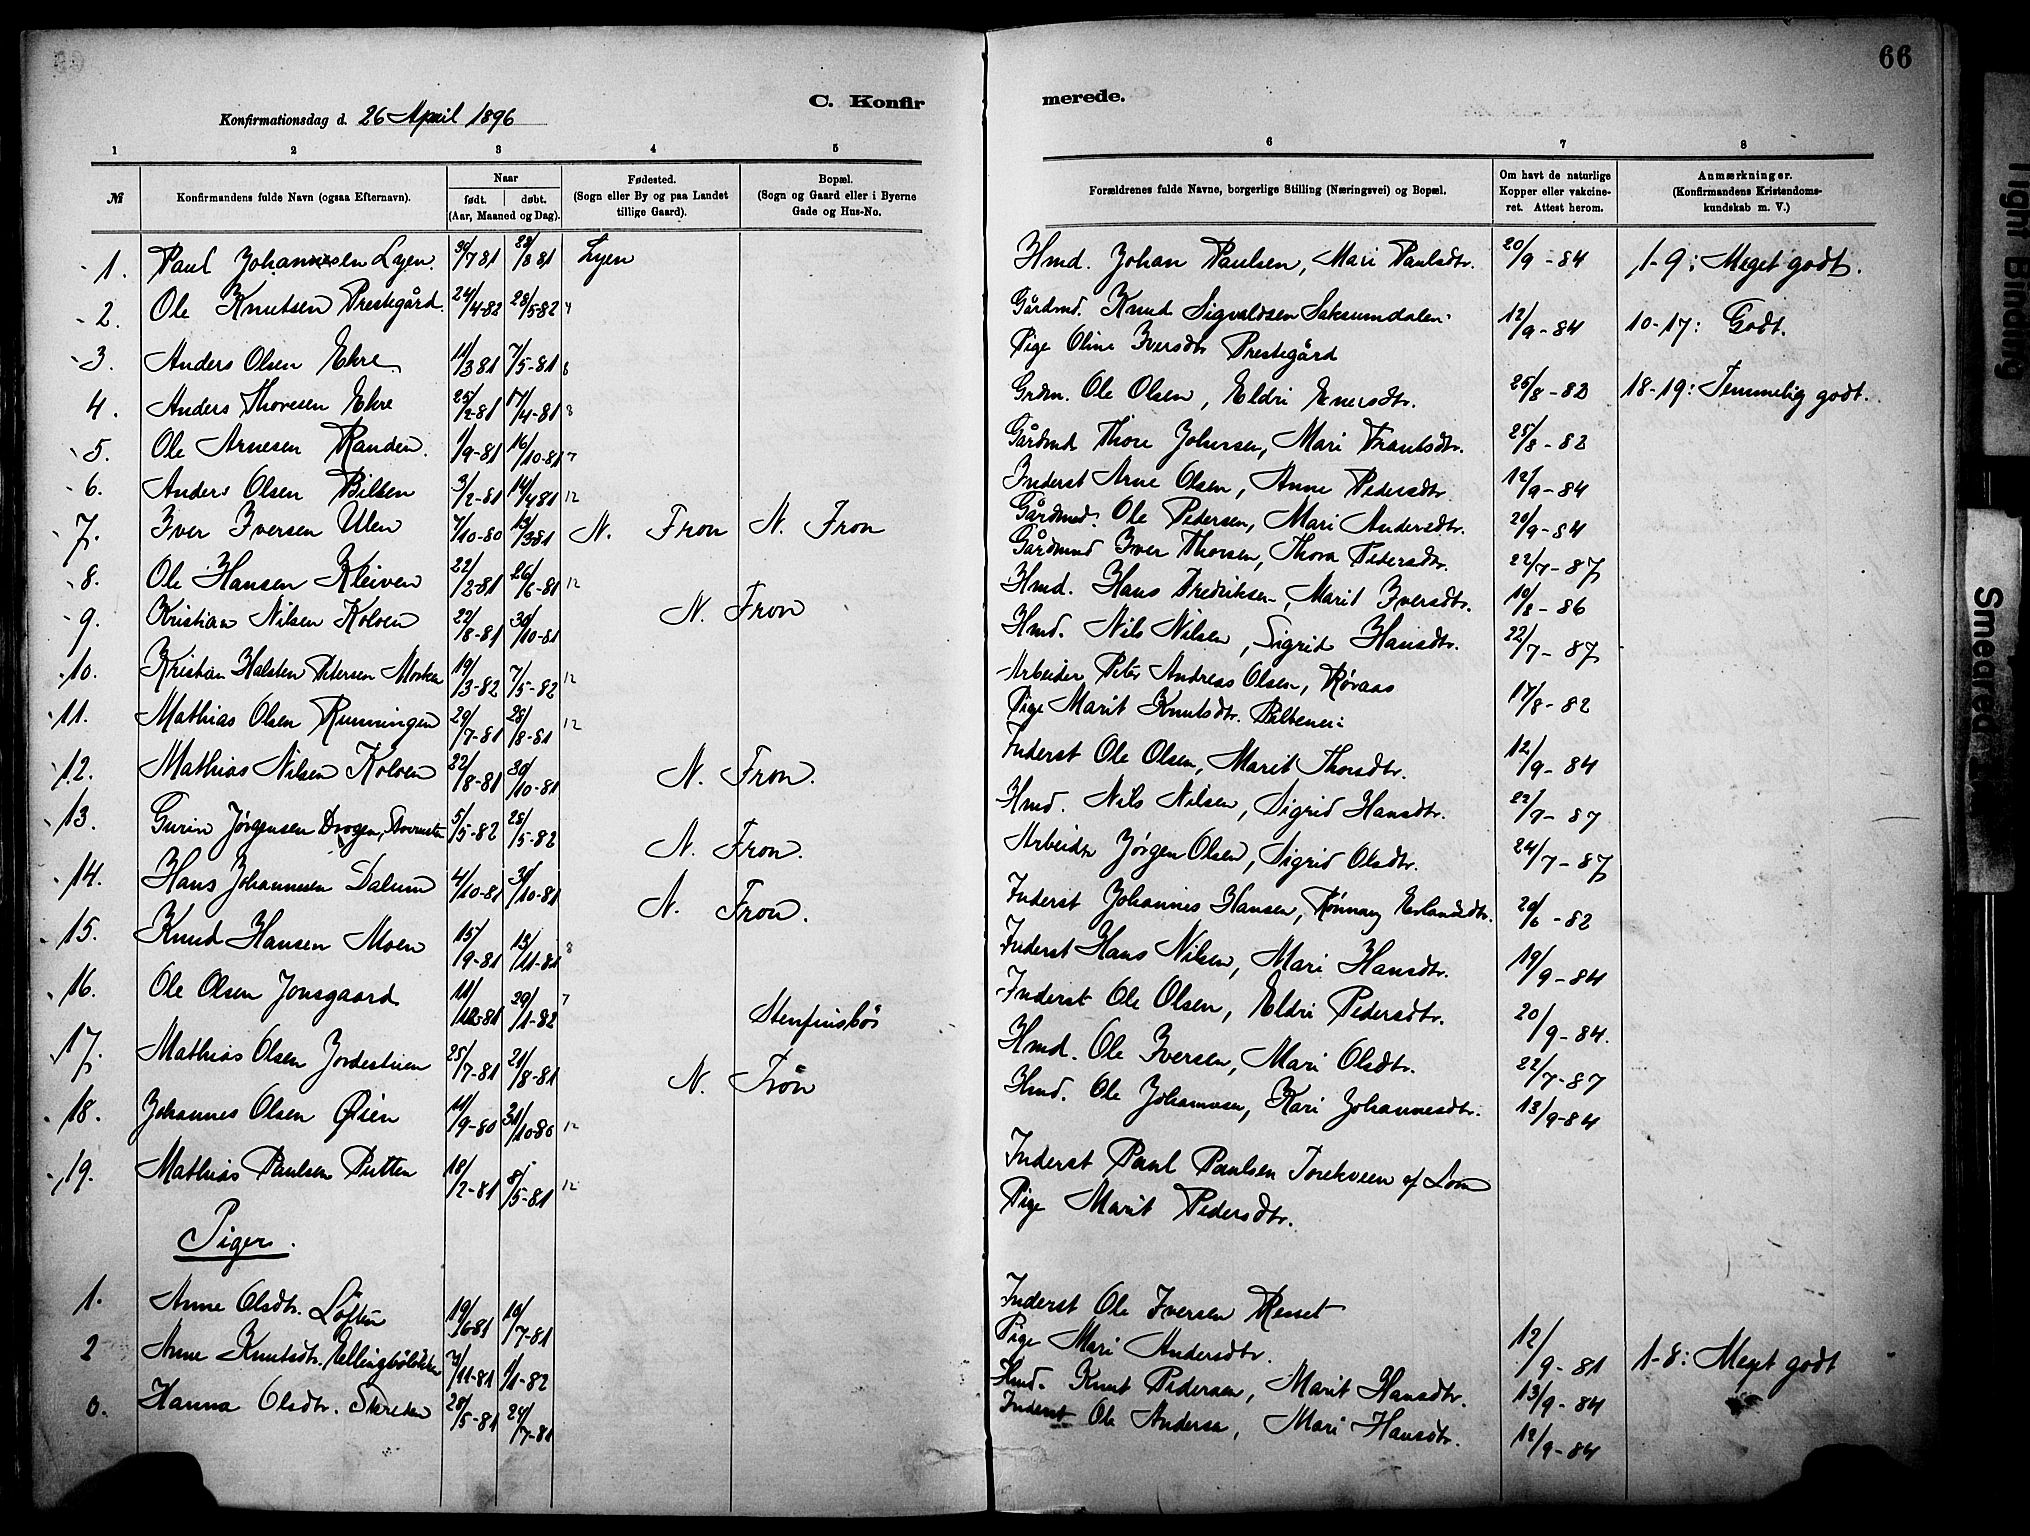 66
C. Konfirmerede.
Konfirmationsdag d. 26 April 1896
1 2 3 4 5 6 7 8
№ Konfirmandens fulde Navn (ogsaa Efternavn). Naar født. døbt. (Aar, Maaned og Dag). Fødested. (Sogn eller By og paa Landet tillige Gaard). Bopæl. (Sogn og Gaard eller i Byerne Gade og Hus-No. Forældrenes fulde Navne, borgerlige Stilling (Næringsvei) og Bopæl. Om havt de naturlige Kopper eller vakcineret. Attest herom. Anmærkninger. (Konfirmandens Kristendomskundskab m. V.)
1. Paul Johannesen Lyen. 30/7 81 28/8 81 Lyen Hmd. Johan Paulsen, Mari Paulsdtr. 20/9-84 1-9: Meget godt.
2. Ole Knutsen Prestegård. 24/4-82 28/5-82 Gårdmd. Knud Sigvaldsen Saksumdalen 12/9-84 10-17: Godt.
Pige Oline Iversdtr Prestegård
3. Anders Olsen Ekre 11/3 81 7/5-81 Grdm. Ole Olsen, Eldri Enersdtr. 25/8-83 18-19: Temmelig godt.
4. Anders Thoresen Ekre 25/2-81 17/4-81 Gårdmd Thore Johnsen, Mari Frantsdtr. 25/8-82
5. Ole Arnesen Randen. 1/9-81 16/10-81 7 Inderst Arne Olsen, Anne Pedersdtr 12/9-84
6. Anders Olsen Bilben 3/2-81 14/4 81 12 Gårdmd. Ole Pedersen, Mari Andersdtr. 20/9-84
7. Iver Iversen Ulen 7/10-80 13/3 81 N. Fron N. Fron Gårdmd Iver Thorsen, Thora Pedersdtr. 22/7-87
8. Ole Hansen Kleiven 22/2-81 26/6-81 12 Hmd. Hans Fredriksen, Marit Iversdtr. 19/8-86
9. Kristian Nilsen Kolven 22/8-81 30/10-81 N. Fron Hmd. Nils Nilsen, Sigrid Hansdtr. 22/7-87
10. Kristian Halsten Petersen 19/3-82 7/5-82 12 Arbeider Peter Andreas Olsen, Røraas 17/8-82
Pige Marit Knutsdtr.
11. Mathias Olsen Runningen 29/7-81 28/8-81 12 Inderst Ole Olsen, Marit Thorsdtr. 12/9-84
12. Mathias Nilsen Kolven 22/8-81 30/10-81 N. Fron. Hmd. Nils Nilsen, Sigrid Hansdtr. 22/7-87
13. Gurin Jørgensen Drogen, 5/5-82 28/5-82 N. Fron. Arbeider Jørgen Olsen, Sigrid Olsdtr. 24/7-87
14. Hans Johannesen Dalum 4/10-81 30/10-81 N. Fron. Inderst Johannes Hansen, Rønnaug Erlandsdtr. 20/6-82
15. Knud Hansen Moen 15/9-81 13/11-81 8 Inderst Hans Nilsen, Mari Hansdtr. 19/9-84
16. Ole Olsen Jonsgaard 11/12-81 29/1-82 7 Stenfinsbø Inderst Ole Olsen, Eldri Pedersdtr. 20/9-84.
17. Mathias Olsen Jordestuen 25/7-81 21/8-81 N. Fron Hmd. Ole Iversen, Mari Olsdtr. 22/7-87
18. Johannes Olsen Øien 11/9-80 31/10-80 12 Hmd. Ole Johannesen, Kari Johannesdtr. 13/9-84
19. Mathias Paulsen Putten 18/2-81 8/5-81 12 Inderst Paul Paulsen af Lom
Pige Marit Pedersdtr.
Piger.
1. Anne Olsdtr. Løften 19/6 81 10/7-81 Inderst Ole Iversen Resset
Pige Mari Andersdtr. 12/9-81 1-8: Meget godt
2 Anne Knutsdtr. /11-81 1/1-82 Hmd. Knut Pedersen, Marit Hansdtr. 13/9-84
3. Hanna Olsdtr. Skreden 28/5-81 24/7-81 Inderst Ole Andersen, Mari Hansdtr. 12/9-84
Tight Binding
Smeared